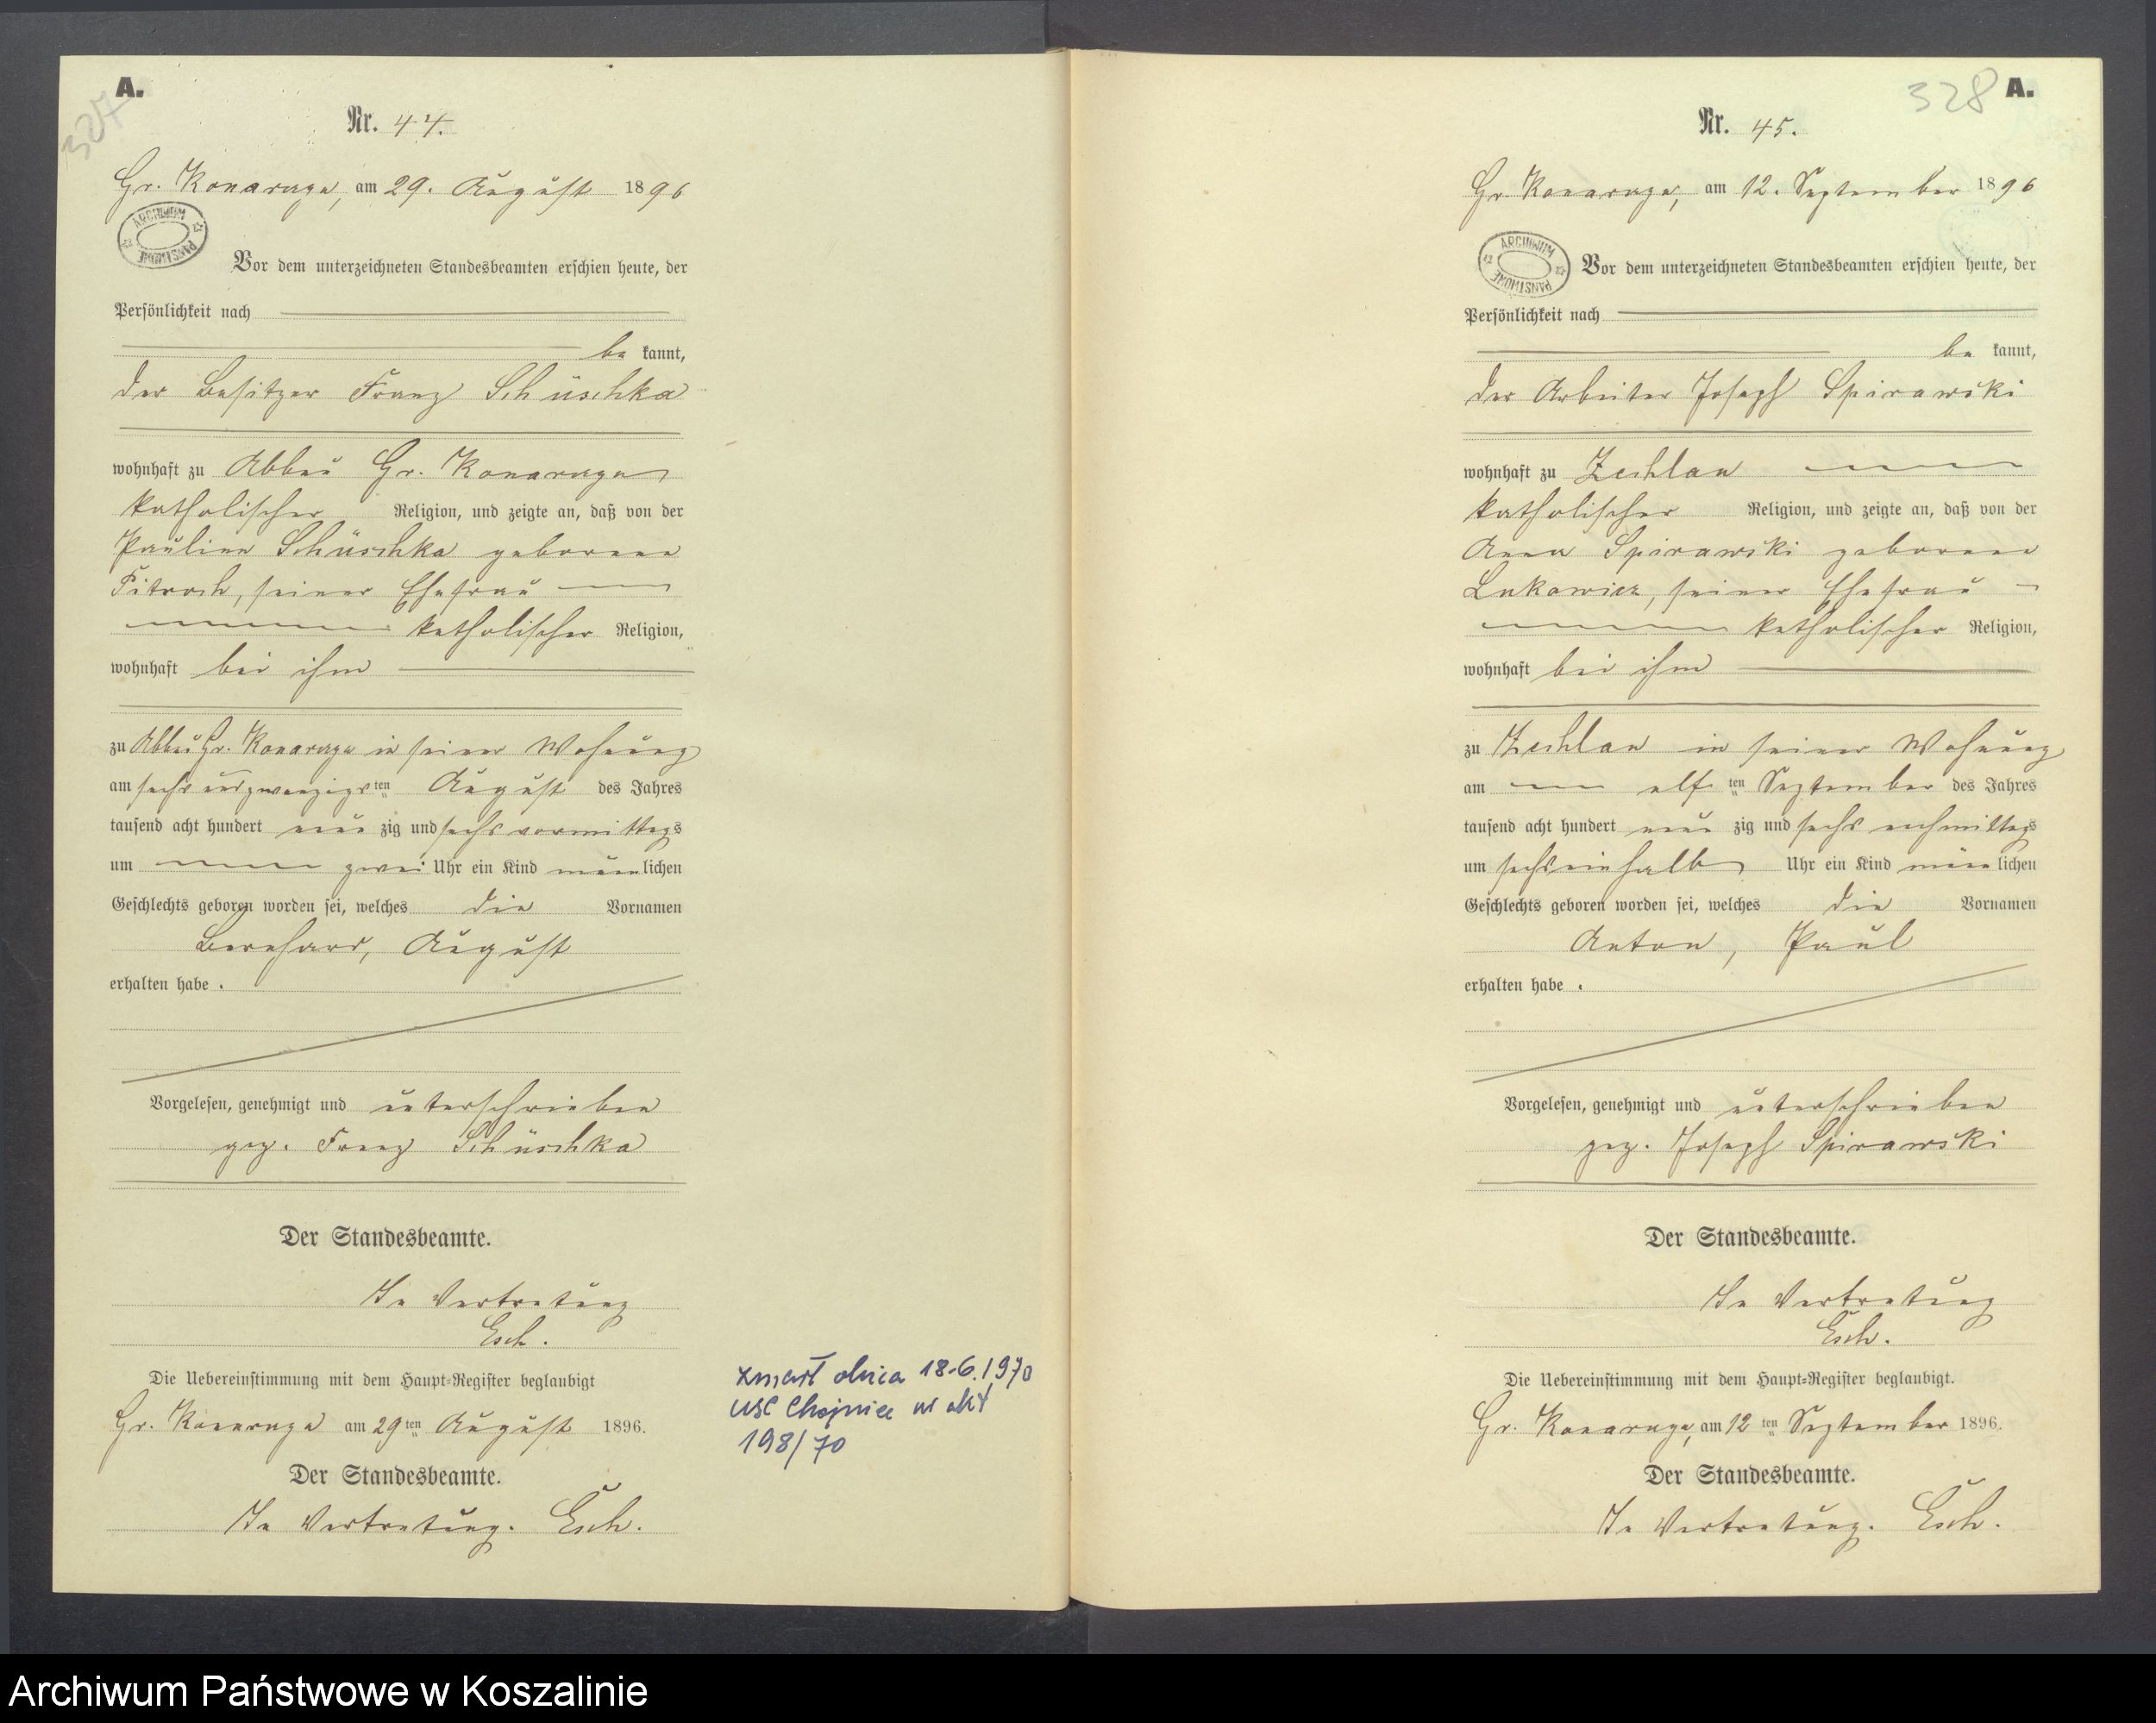 A.
327
Nr. 44.
Gr. Konarzyn, am 29. August 1896
ARCHIWUM PAŃSTWOWE
Vor dem unterzeichneten Standesbeamten erschien heute, der
Persönlichkeit nach
be kannt,
der Besitzer Franz Schüschka
wohnhaft zu Abbau Gr. Konarzyn
katholischer Religion, und zeigte an, daß von der
Pauline Schüschka geborene
seiner Ehefrau
katholischer Religion,
wohnhaft bei ihm
zu Abbau Gr. Konarzyn in seiner Wohnung
am sechs und zwanzigsten August des Jahres
tausend acht hundert neun zig und sechs vormittags
um zwei Uhr ein Kind männlichen
Geschlechts geboren worden sei, welches die Vornamen
Bernhard, August
erhalten habe.
Vorgelesen, genehmigt und unterschrieben
gez. Franz Schüschka
Der Standesbeamte.
In Vertretung
Esch.
Die Uebereinstimmung mit dem Haupt=Register beglaubigt
Gr. Konarzyn am 29ten August 1896.
Der Standesbeamte.
In Vertretung. Esch.
zmarł dnia 18.6.1970
USC Chojnice nr akt
198/70
328 A.
Nr. 45.
Gr. Konarzyn, am 12. September 1896
ARCHIWUM PAŃSTWOWE
Vor dem unterzeichneten Standesbeamten erschien heute, der
Persönlichkeit nach
be kannt,
der Arbeiter Joseph Spirawski
wohnhaft zu Zechlau
katholischer Religion, und zeigte an, daß von der
Anna Spirawski geborene
Lukowicz, seiner Ehefrau
katholischer Religion,
wohnhaft bei ihm
zu Zechlau in seiner Wohnung
am elf ten September des Jahres
tausend acht hundert neun zig und sechs nachmittags
um sechseinhalb Uhr ein Kind männlichen
Geschlechts geboren worden sei, welches die Vornamen
Anton, Paul
erhalten habe.
Vorgelesen, genehmigt und unterschrieben
gez. Joseph Spirawski
Der Standesbeamte.
In Vertretung
Esch.
Die Uebereinstimmung mit dem Haupt=Register beglaubigt.
Gr. Konarzyn, am 12ten September 1896.
Der Standesbeamte.
In Vertretung. Esch.
Archiwum Państwowe w Koszalinie